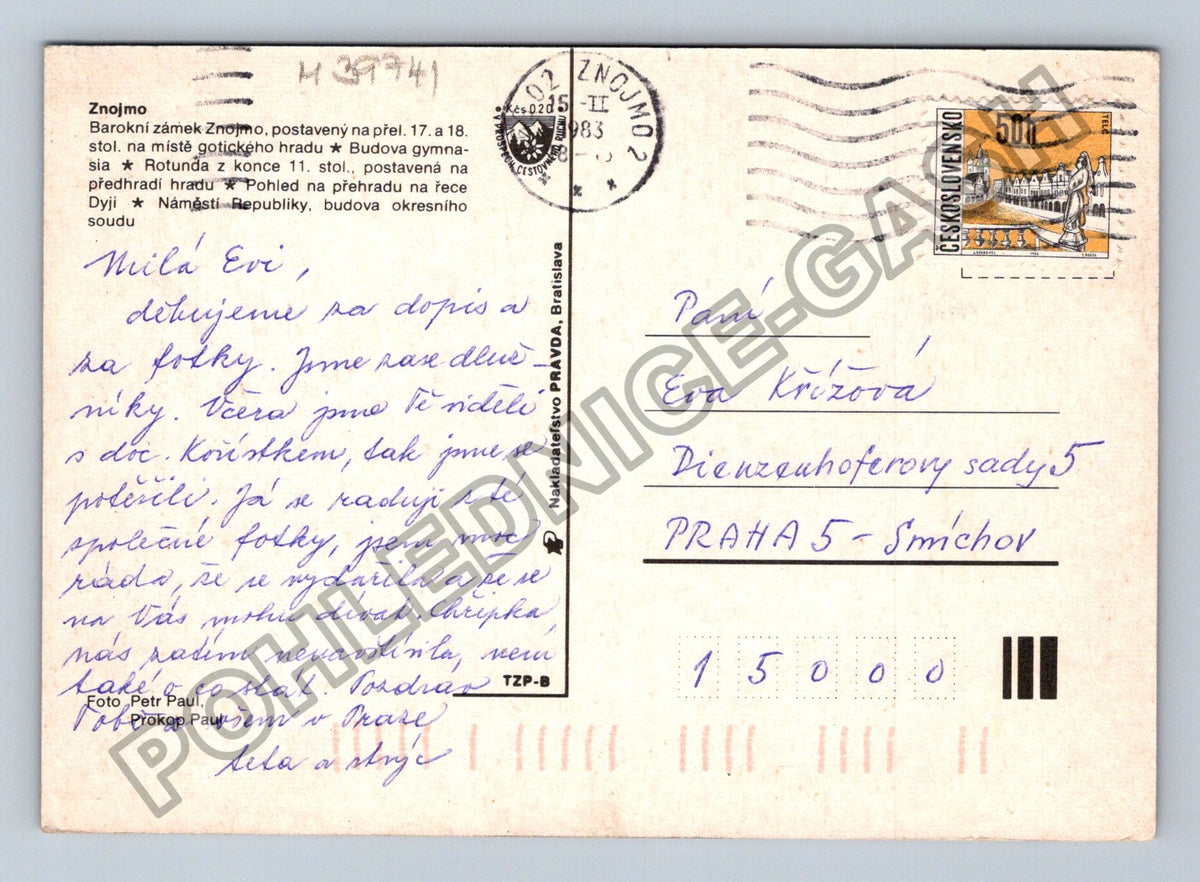 H 39741
Znojmo
Barokní zámek Znojmo, postavený na přel. 17. a 18.
stol. na místě gotického hradu ★ Budova gymna-
sia ★ Rotunda z konce 11. stol., postavená na
předhradí hradu ★ Pohled na přehradu na řece
Dyji ★ Náměstí Republiky, budova okresního
soudu
Milá Evi,
děkujeme za dopis a
za fotky. Jsme zase dluž-
níky. Včera jsme Tě viděli
s doc. Kořístkem, tak jsme se
potěšili. Já se raduji z té
společné fotky, jsem moc
ráda, že se vydařila a že se
na Vás mohu dívat. Chřipka
nás zatím nenavštívila, není
také o co stát. Pozdrav
Tobě a všem v Praze
teta a strýc
Foto Petr Paul,
Prokop Paul
Nakladateľstvo PRAVDA, Bratislava
TZP-B
Kčs 0.20
ZNOJMO 2
15 -II
1983
ČESKOSLOVENSKO
50h
TELČ
Paní
Eva Křížová
Dienzenhoferovy sady 5
PRAHA 5 - Smíchov
15000
POHLEDNICE-GASH